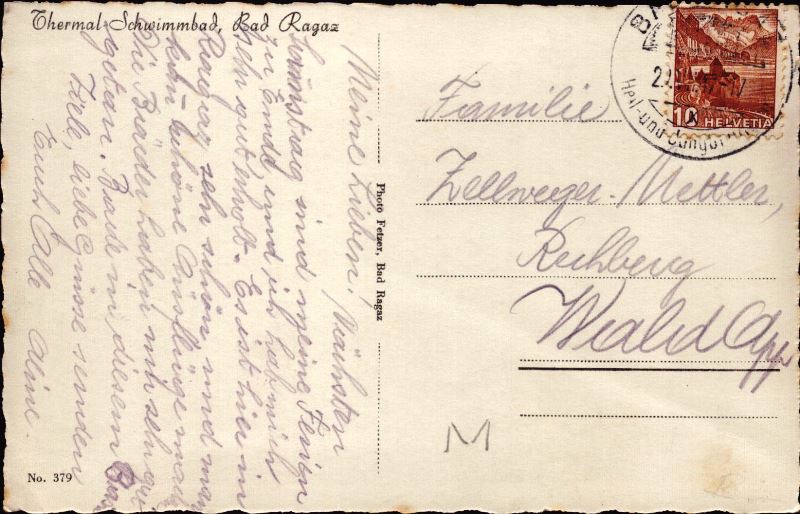 Thermal-Schwimmbad, Bad Ragaz
Meine Lieben! Nächsten
sind meine Ferien
zu Ende und ich hab mich
sehr gut erholt. Es ist hier in
Ragaz sehr schön und man
kan schöne Ausflüge mach
Die Bäder haben mir sehr gut
getan. Bade in diesem
Viele, liebe Grüsse senden
Euch Alle Aline.
No. 379
Photo Fetzer, Bad Ragaz
Familie
Zellweger-Mettler,
Rechberg
Wald App
M
10
HELVETIA
Heil-und